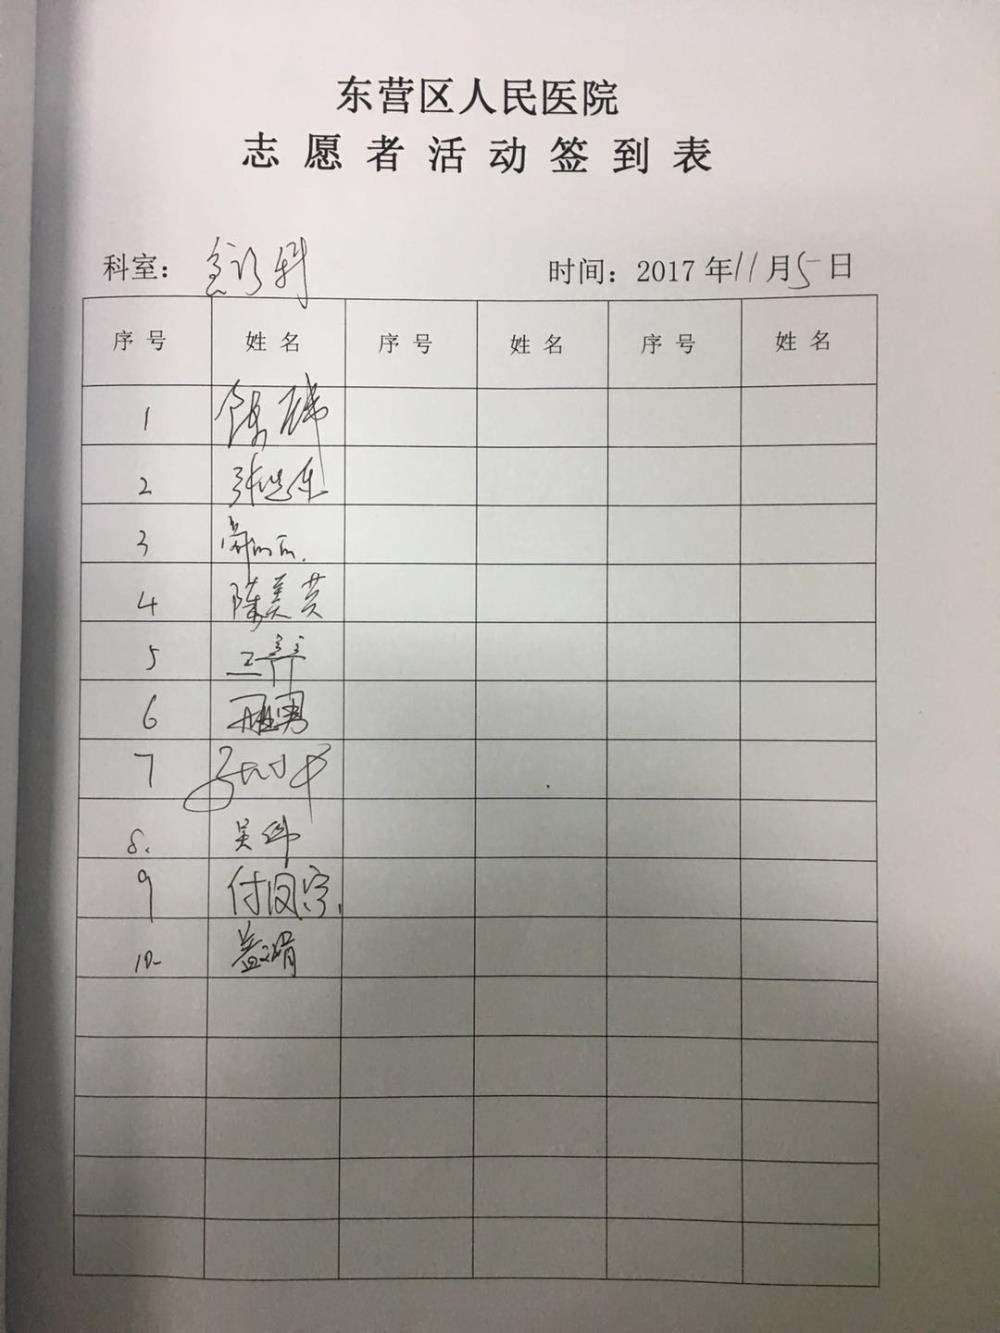 东营区人民医院
志愿者活动签到表
科室：急诊科 时间：2017年11月5日
序号 姓名 序号 姓名 序号 姓名
1
2 张
3
4 陈美芸
5 王
6 男
7
8. 吴伟
9 付闵宁
10 盖文娟